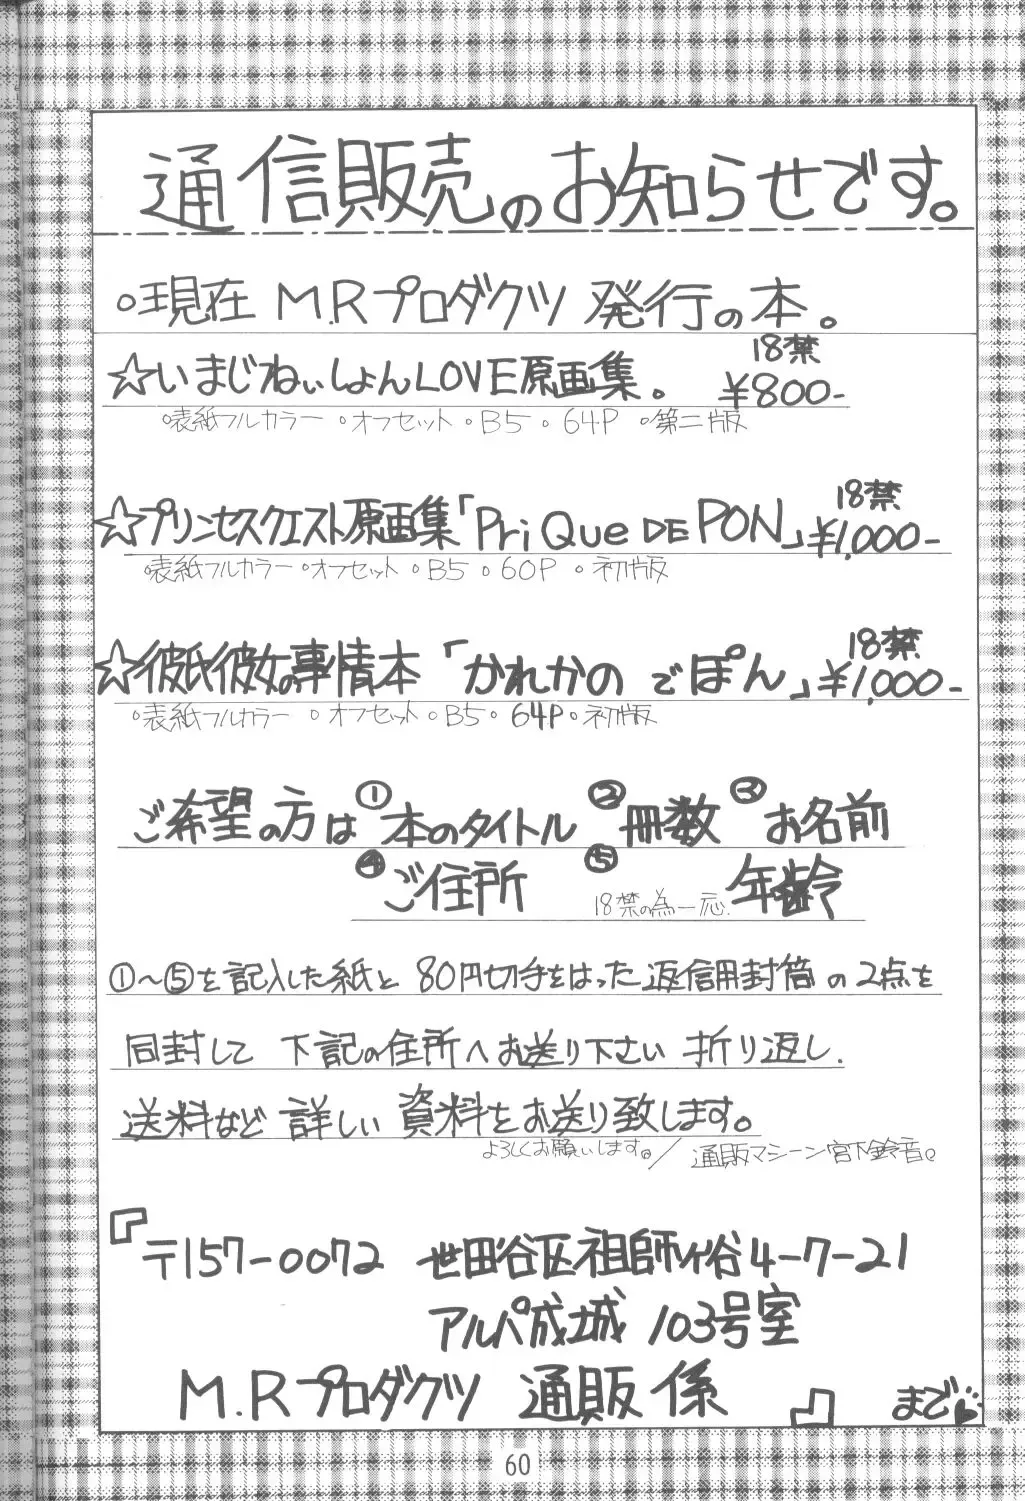 通信販売のお知らせです。
○現在 M.Rプロダクツ 発行の本。
18禁
☆いまじねぃしょんLOVE原画集。 ¥800-
○表紙フルカラー ○オフセット○B5○64P ○第二版
18禁
☆プリンセスクエスト原画集「Pri Que DE PON」¥1,000-
○表紙フルカラー ○オフセット○B5○60P ○初版
18禁
☆彼氏彼女の事情本「かれかの でぽん」¥1,000-
○表紙フルカラー ○オフセット○B5○64P○初版
ご希望の方は ①本のタイトル ②冊数 ③お名前
④ご住所 ⑤18禁の為一応.年齢
①〜⑤を記入した紙と 80円切手をはった返信用封筒の2点を
同封して 下記の住所へお送り下さい 折り返し.
送料など 詳しい 資料をお送り致します。
よろしくお願いします。／通販マシーン宮下鈴音。
『〒157-0072 世田谷区祖師ヶ谷4-7-21
アルパ成城 103号室
M.Rプロダクツ 通販係 』 まで♥
60